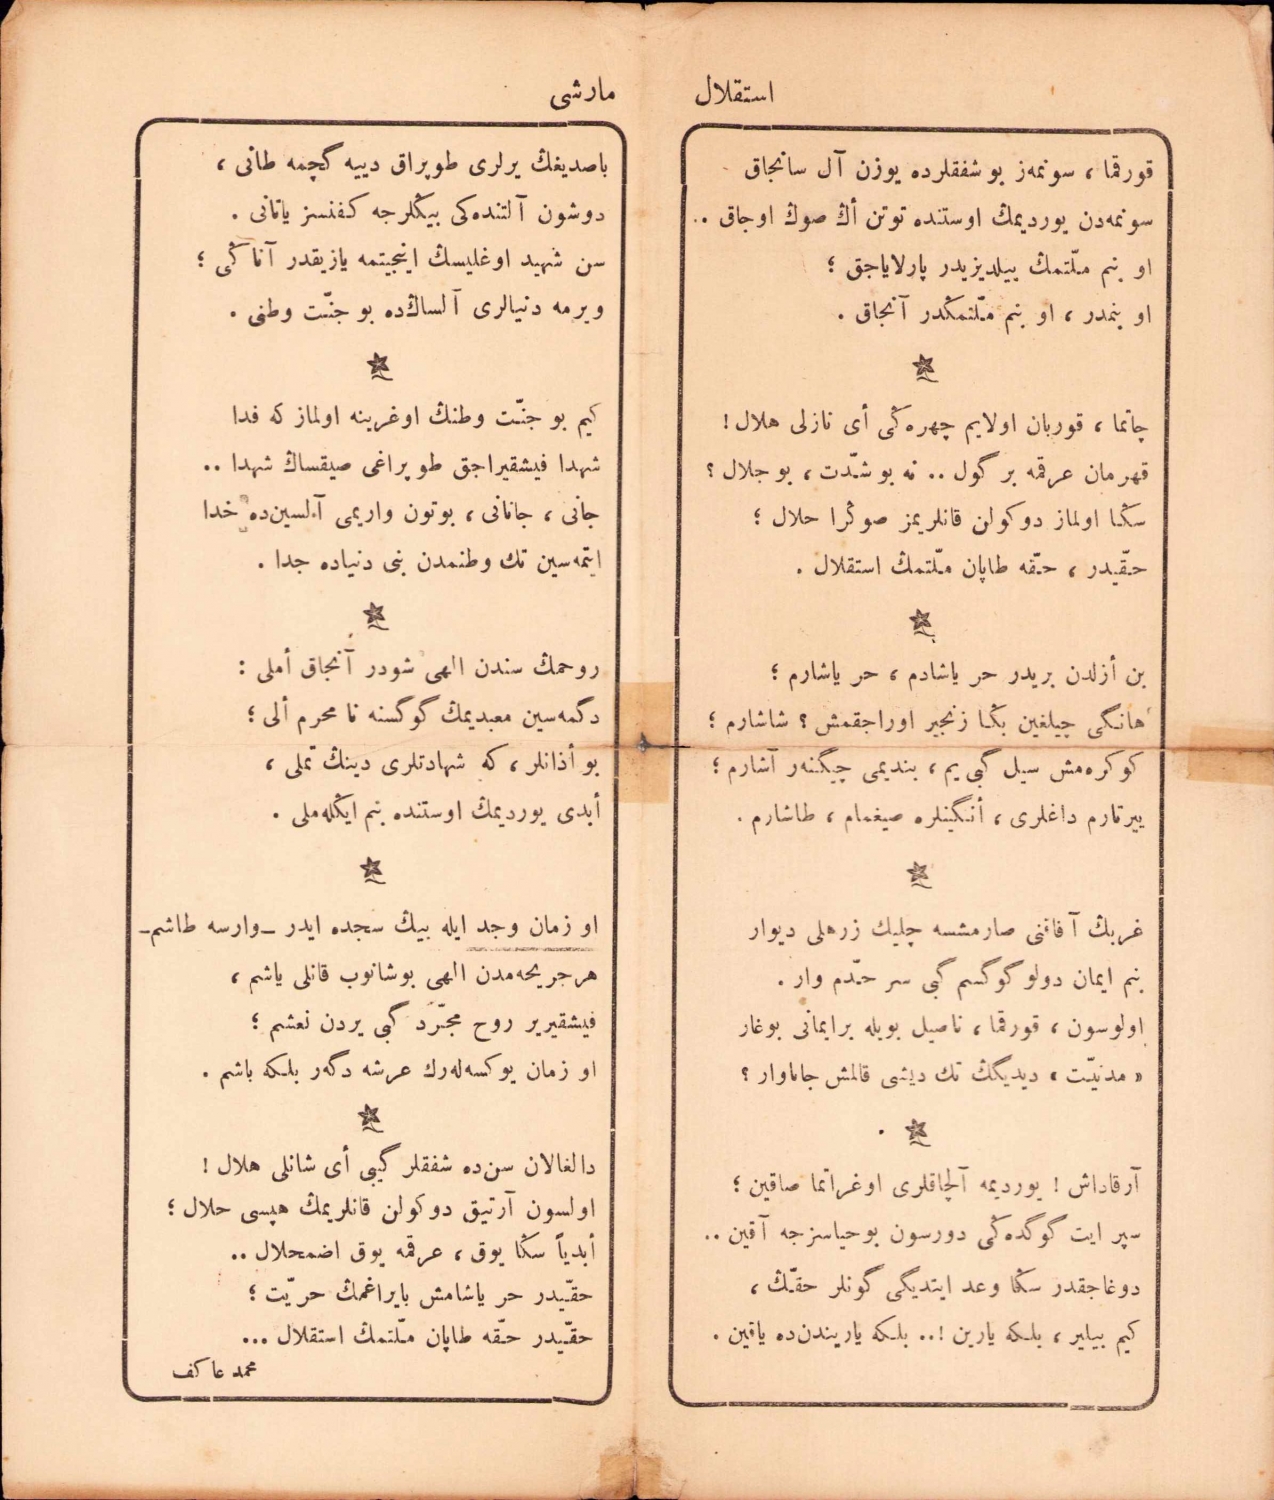 استقلال مارشی
قورقما ، سونمه‌ز بو شفقلرده یوزن آل سانجاق
سونمه‌دن یوردیمڭ اوستنده توتن أڭ صوڭ اوجاق ..
او بنم ملّتمڭ ییلدیزیدر پارلایاجق ؛
او بنمدر ، او بنم ملّتمڭدر آنجاق .
چاتما ، قوربان اولایم چهره‌ڭی أی نازلی هلال !
قهرمان عرقمه بر گول .. نه بو شدّت ، بو جلال ؟
سڭا اولماز دوكولن قانلریمز صوڭرا حلال ؛
حقّیدر ، حقّه طاپان ملّتمڭ استقلال .
بن أزلدن بریدر حر یاشادم ، حر یاشارم ؛
هانگی چیلغین بڭا زنجیر اوراجقمش ؟ شاشارم ؛
كوكره‌مش سیل گبی یم ، بندیمی چیگنه‌ر آشارم ؛
ییرتارم داغلری ، أنگینلره صیغمام ، طاشارم .
غربڭ آفاقنی صارمشسه چلیك زرهلی دیوار
بنم ایمان دولو گوگسم گبی سر حدّم وار .
اولوسون ، قورقما ، ناصیل بویله برایمانی بوغار
« مدنیّت » دیدیگڭ تك دیشی قالمش جاناوار ؟
آرقاداش ! یوردیمه آلچاقلری اوغراتما صاقین ؛
سپر ایت گوگده‌ڭی دورسون بوحیاسزجه آقین ..
دوغاجقدر سڭا وعد ایتدیگی گونلر حقّڭ ،
كیم بیلیر ، بلكه یارین !.. بلكه یاریندن‌ده یاقین .
باصدیغڭ یرلری طوپراق دییه گچمه طانی ،
دوشون آلتنده‌كی بیڭلرجه كفنسز یاتانی .
سن شهید اوغلیسڭ اینجیتمه یازیقدر آتاڭی ؛
ویرمه دنیالری آلساڭ‌ده بو جنّت وطنی .
كیم بو جنّت وطنڭ اوغرینه اولماز كه فدا
شهدا فیشقیراجق طوپراغی صیقساڭ شهدا ..
جانی ، جانانی ، بوتون واریمی آلسین‌ده خدا
ایتمه‌سین تك وطنمدن بنی دنیاده جدا .
روحمڭ سندن الهی شودر آنجاق أملی :
دگمه‌سین معبدیمڭ گوگسنه نا محرم ألی ؛
بو أذانلر ، كه شهادتلری دینڭ تملی ،
أبدی یوردیمڭ اوستنده بنم ایڭله‌ملی .
او زمان وجد ایله بیڭ سجده ایدر ـ وارسه طاشم ـ
هرجریحه‌مدن الهی بوشانوب قانلی یاشم ،
فیشقیریر روح مجرّد گبی یردن نعشم ؛
او زمان یوكسه‌له‌رك عرشه دگه‌ر بلكه باشم .
دالغالان سن‌ده شفقلر گیبی أی شانلی هلال !
اولسون آرتیق دوكولن قانلریمڭ هپسی حلال ؛
أبدیاً سڭا یوق ، عرقمه یوق اضمحلال ..
حقّیدر حر یاشامش بایراغمڭ حریّت ؛
حقّیدر حقّه طاپان ملّتمڭ استقلال ...
محمد عاكف